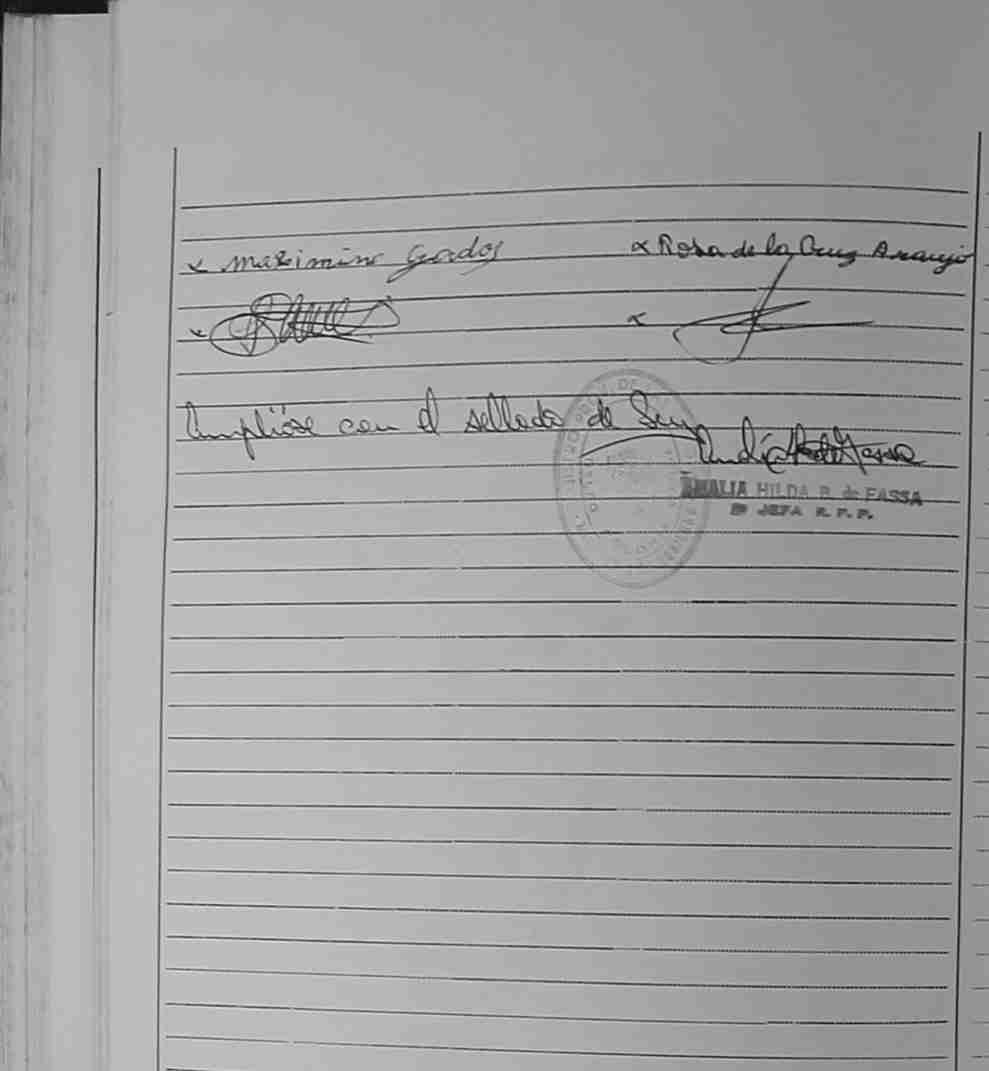 x Maximino Godos x Rosa de la Cruz Araujo
x x
Cumplióse con el sellado de Ley
AMALIA HILDA R. de FASSA
JEFA R. P. P.